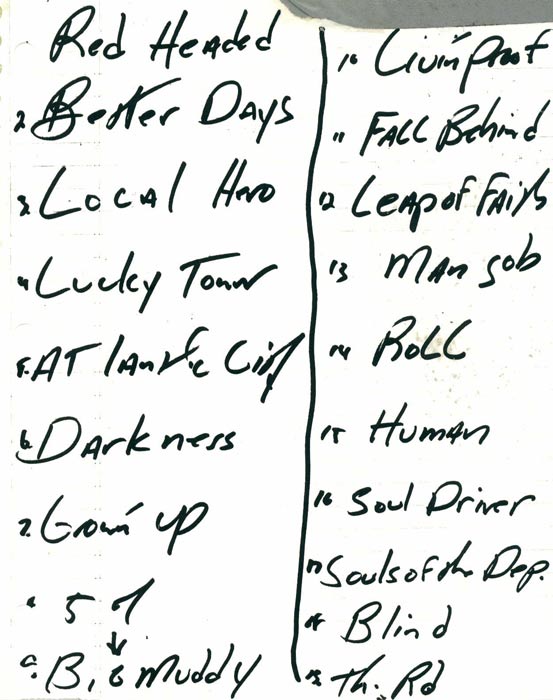 Red Headed
2. Better Days
3. Local Hero
4. Lucky Town
5. Atlantic City
6. Darkness
7. Growin' up
8 57
↓
9. Big Muddy
10 Livin' Proof
11 FALL Behind
12 Leap of Faith
13 Man's Job
14 Roll
15 Human
16 Soul Driver
17 Souls of the Dep.
18 Blind
19 Th. Rd